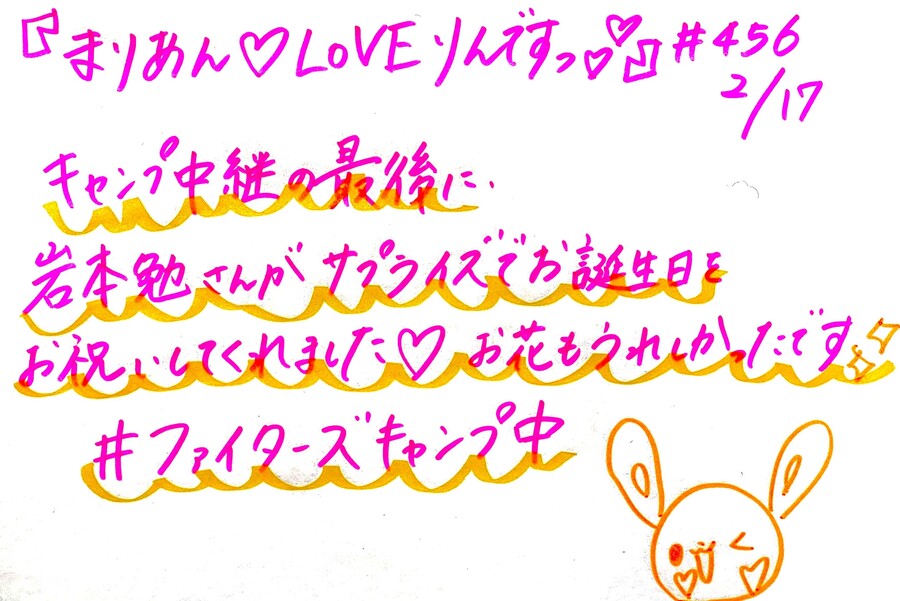 『まりあん♡LOVEりんですっ♡♡』#456
2/17
キャンプ中継の最後に、
岩本勉さんがサプライズでお誕生日を
お祝いしてくれました♡お花もうれしかったです
#ファイターズキャンプ中